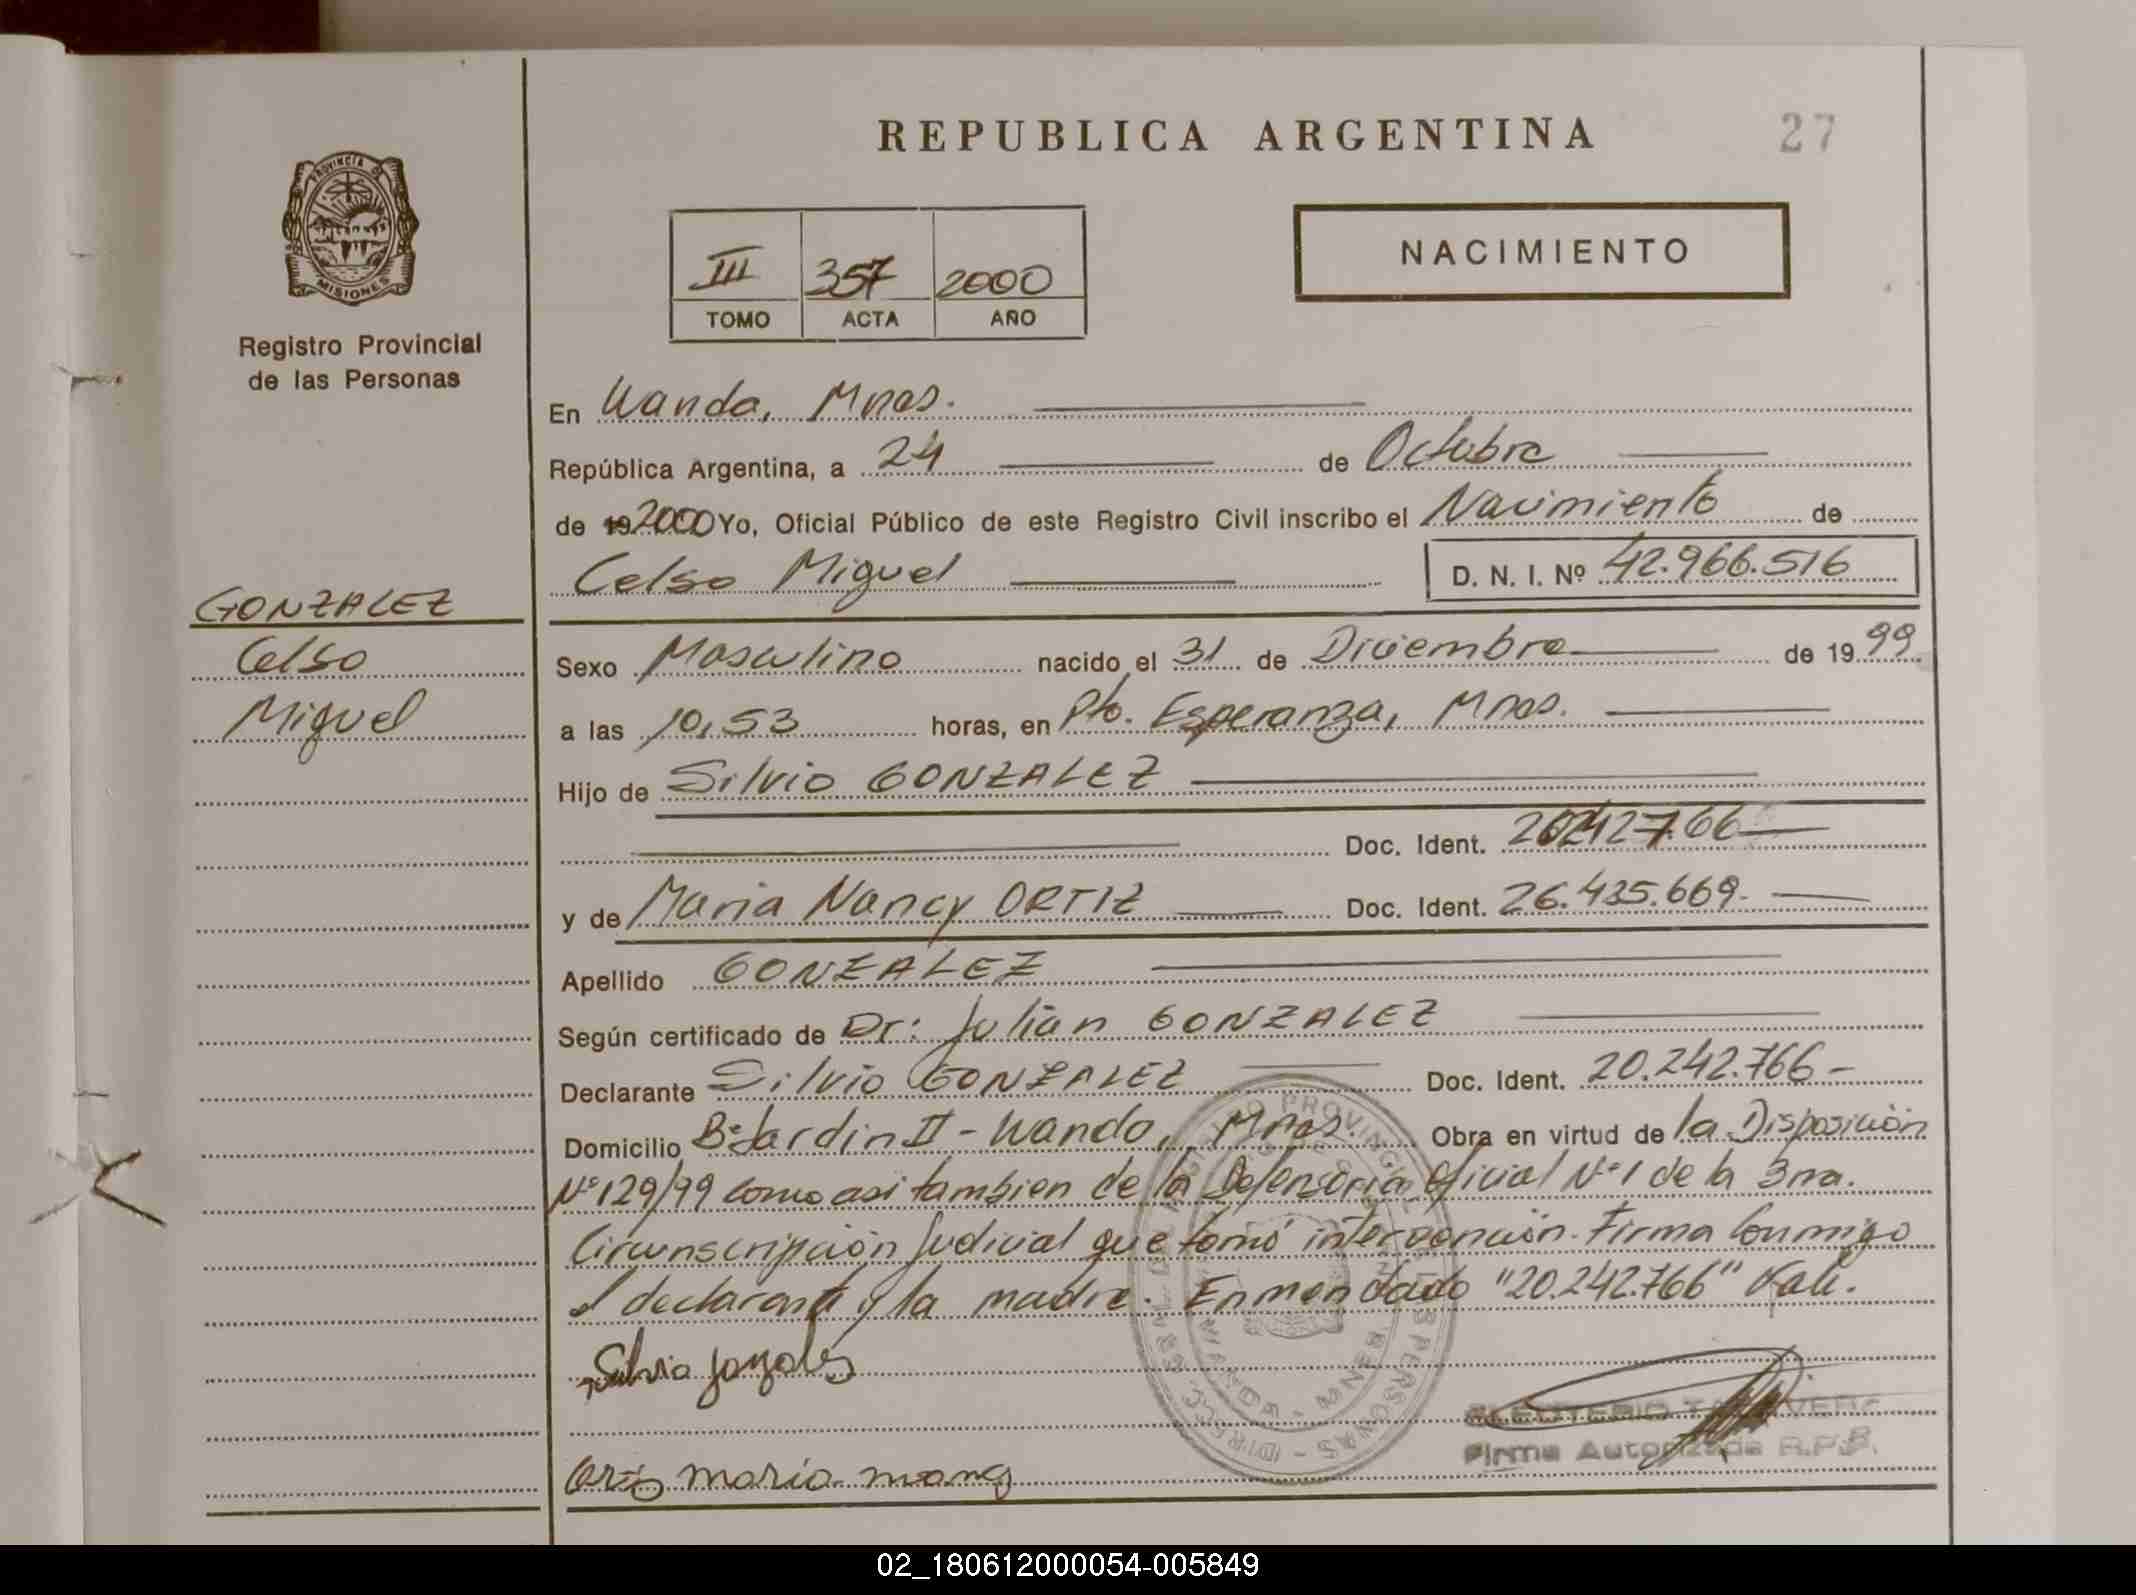 REPUBLICA ARGENTINA
27
PROVINCIA DE
MISIONES
Registro Provincial
de las Personas
III 357 2000
TOMO ACTA AÑO
NACIMIENTO
En Wanda, Mnes.
República Argentina, a 24 de Octubre
de 19 2000 Yo, Oficial Público de este Registro Civil inscribo el Nacimiento de
Celso Miguel D. N. I. Nº 42.966.516
GONZALEZ
Celso
Miguel
Sexo Masculino nacido el 31 de Diciembre de 1999
a las 10,53 horas, en Pto. Esperanza, Mnes.
Hijo de Silvio GONZALEZ
Doc. Ident.
y de Maria Nancy ORTIZ Doc. Ident. 26.435.669.
Apellido GONZALEZ
Según certificado de Dr: Julian GONZALEZ
Declarante Silvio GONZALEZ Doc. Ident. 20.242.766-
Domicilio Bº Jardin II - Wanda, Mnes. Obra en virtud de la Disposición
Nº 129/99 como asi tambien de la Defensoria Oficial Nº 1 de la 3ra.
Circunscripción Judicial que tomó intervención. Firma Conmigo
el declarante y la madre. Enmendado "20.242.766" Vale.
Silvio
ortiz maria
Firma Autorizada R.P.
02_180612000054-005849